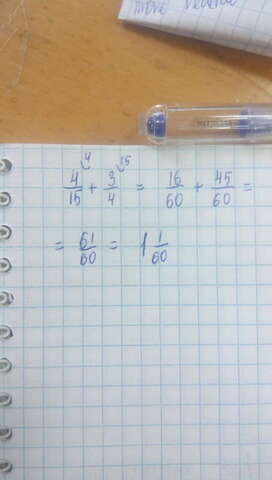 4/15 ⁴ + 3/4 ¹⁵ = 16/60 + 45/60 =
= 61/60 = 1 1/60